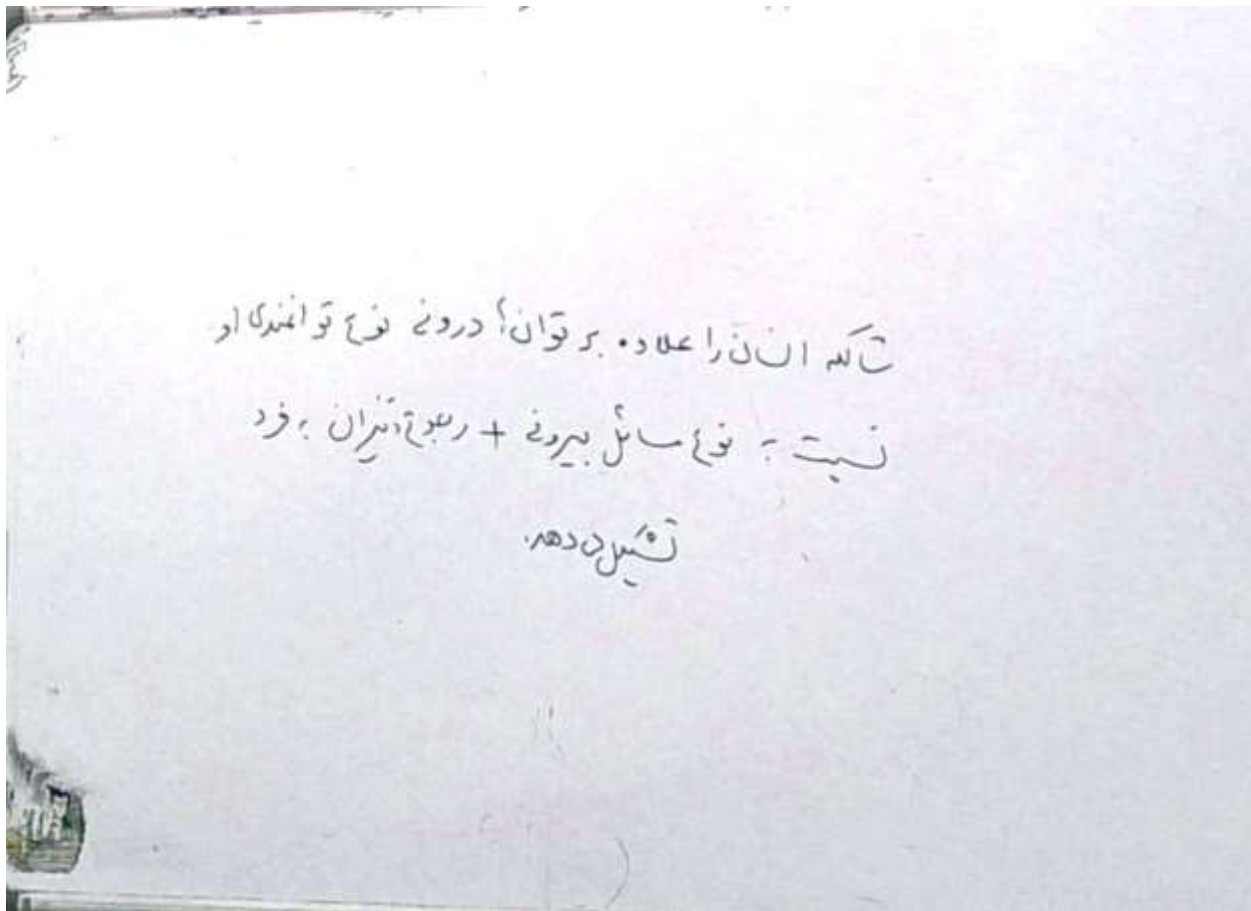 شاکله انسان را علاوه بر توان‌ها درونی نوع توانمندی او
نسبت به نوع مسائل بیرونی + رجوع دیگران به فرد
تشکیل می‌دهد.